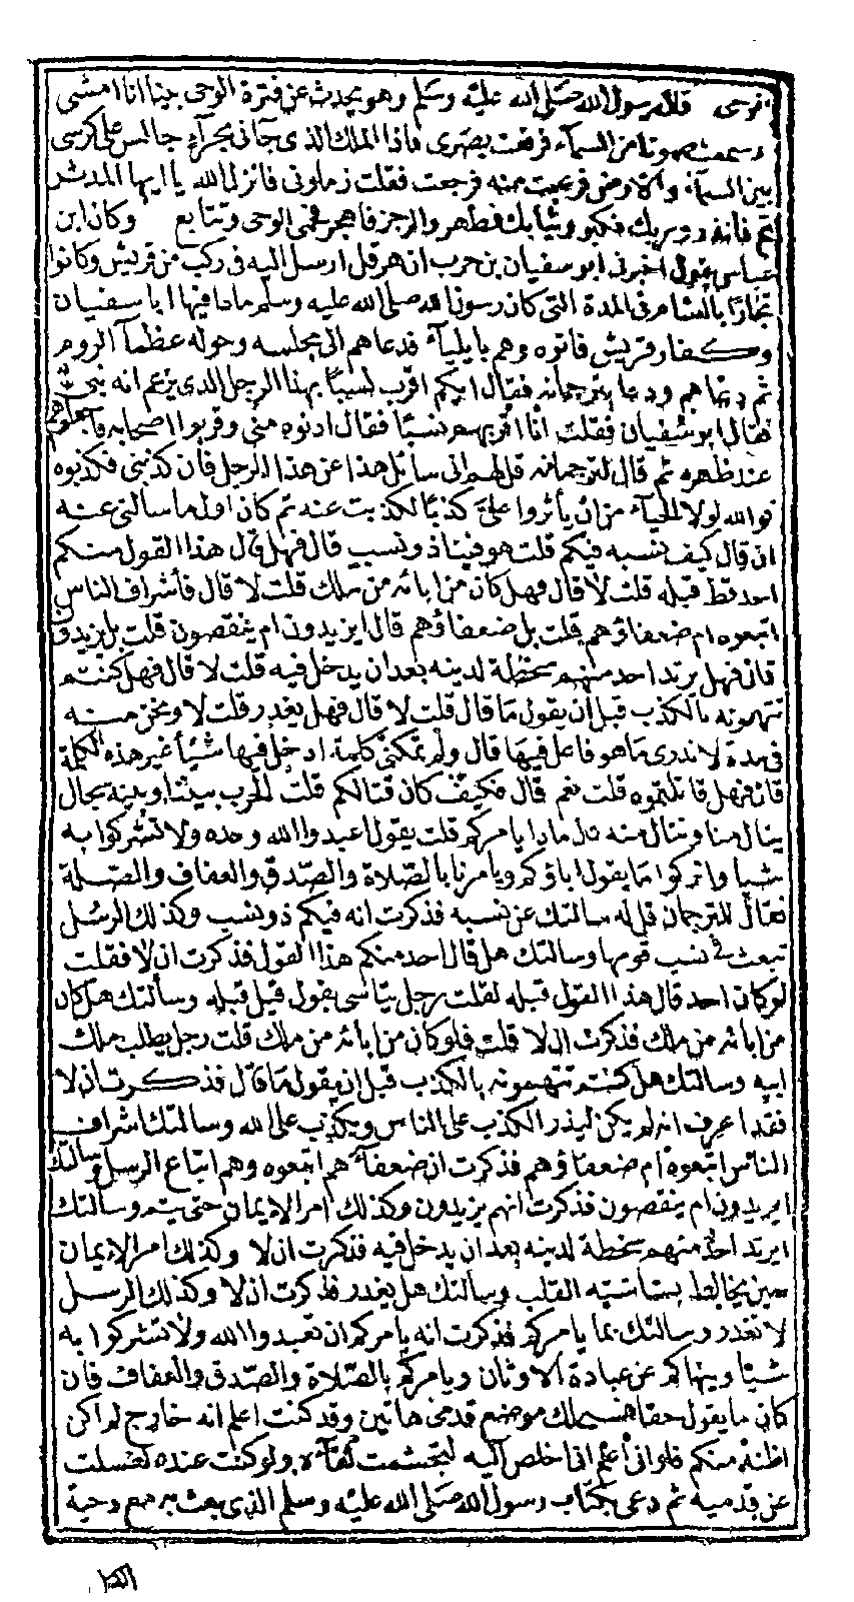 نوحى قال رسول الله صلى الله عليه وسلم وهو يحدث عن فترة الوحى بينا انا امشى
وسمعت صوتا من السمآء فرفعت بصرى فاذا الملك الذى جآنى بحرآء جالس على كرسى
بين السمآء والارض فرعبت منه فرجعت فقلت زملونى فانزل الله يا ايها المدثر
قم فانذر وربك فكبر وثيابك فطهر والرجز فاهجر فحمى الوحى وتتابع وكان ابن
عباس يقول اخبرنى ابو سفيان بن حرب ان هرقل ارسل اليه فى ركب من قريش وكانوا
تجارا بالشام فى المدة التى كان رسول الله صلى الله عليه وسلم ماد فيها ابا سفيان
وكفار قريش فاتوه وهم بايليآء فدعاهم الى مجلسه وحوله عظمآ الروم
ثم دعاهم ودعا بترجمانه فقال ايكم اقرب نسبا بهذا الرجل الذى يزعم انه نبى
فقال ابو سفيان فقلت أنا اقربهم نسبا فقال ادنوه منى وقربوا اصحابه فاجعلوهم
عند ظهره ثم قال لترجمانه قل لهم انى سائل هذا عن هذا الرجل فان كذبنى فكذبوه
فوالله لولا الحيآء من ان يأثروا على كذبا لكذبت عنه ثم كان اول ما سالنى عنه
ان قال كيف نسبه فيكم قلت هو فينا ذو نسب قال فهل قال هذا القول منكم
احد قط قبله قلت لا قال فهل كان من ابائه من ملك قلت لا قال فأشراف الناس
اتبعوه ام ضعفاؤهم قلت بل ضعفاؤهم قال ايزيدون ام ينقصون قلت بل يزيدون
قال فهل يرتد احد منهم سخطة لدينه بعد ان يدخل فيه قلت لا قال فهل كنتم
تتهمونه بالكذب قبل ان يقول ما قال قلت لا قال فهل يغدر قلت لا ونحن منه
فى مدة لا ندرى ما هو فاعل فيها قال ولم تمكنى كلمة ادخل فيها شيأ غير هذه الكلمة
قال فهل قاتلتموه قلت نعم قال فكيف كان قتالكم قلت الحرب بيننا وبينه سجال
ينال منا وننال منه قال ماذا يامركم قلت يقول اعبدوا الله وحده ولا تشركوا به
شيا واتركوا ما يقول اباؤكم ويامرنا بالصلاة والصدق والعفاف والصلة
فقال للترجمان قل له سالتك عن نسبه فذكرت انه فيكم ذو نسب وكذلك الرسل
تبعث فى نسب قومها وسالتك هل قال احد منكم هذا القول فذكرت ان لا فقلت
لو كان احد قال هذا القول قبله لقلت رجل يتاسى بقول قيل قبله وسألتك هل كان
من ابائه من ملك فذكرت ان لا قلت فلو كان من ابائه من ملك قلت رجل يطلب ملك
ابيه وسالتك هل كنتم تتهمونه بالكذب قبل ان يقول ما قال فذكرت ان لا
فقد اعرف انه لم يكن ليذر الكذب على الناس ويكذب على الله وسالتك اشراف
الناس اتبعوه أم ضعفاؤهم فذكرت ان ضعفآءهم اتبعوه وهم اتباع الرسل وسالتك
ايزيدون ام ينقصون فذكرت انهم يزيدون وكذلك امر الايمان حتى يتم وسالتك
ايرتد احد منهم سخطة لدينه بعد ان يدخل فيه فذكرت ان لا وكذلك امر الايمان
حين يخالط بشاشته القلب وسألتك هل يغدر فذكرت ان لا وكذلك الرسل
لا تغدر وسالتك بما يامركم فذكرت انه يامركم ان تعبدوا الله ولا تشركوا به
شيئا وينهاكم عن عبادة الاوثان ويامركم بالصلاة والصدق والعفاف فان
كان ما يقول حقا فسيملك موضع قدمى هاتين وقد كنت اعلم انه خارج لم اكن
اظنه منكم فلو انى أعلم انى اخلص اليه لتجشمت لقآءه ولو كنت عنده لغسلت
عن قدميه ثم دعى بكتاب رسول الله صلى الله عليه وسلم الذى بعث به مع دحية